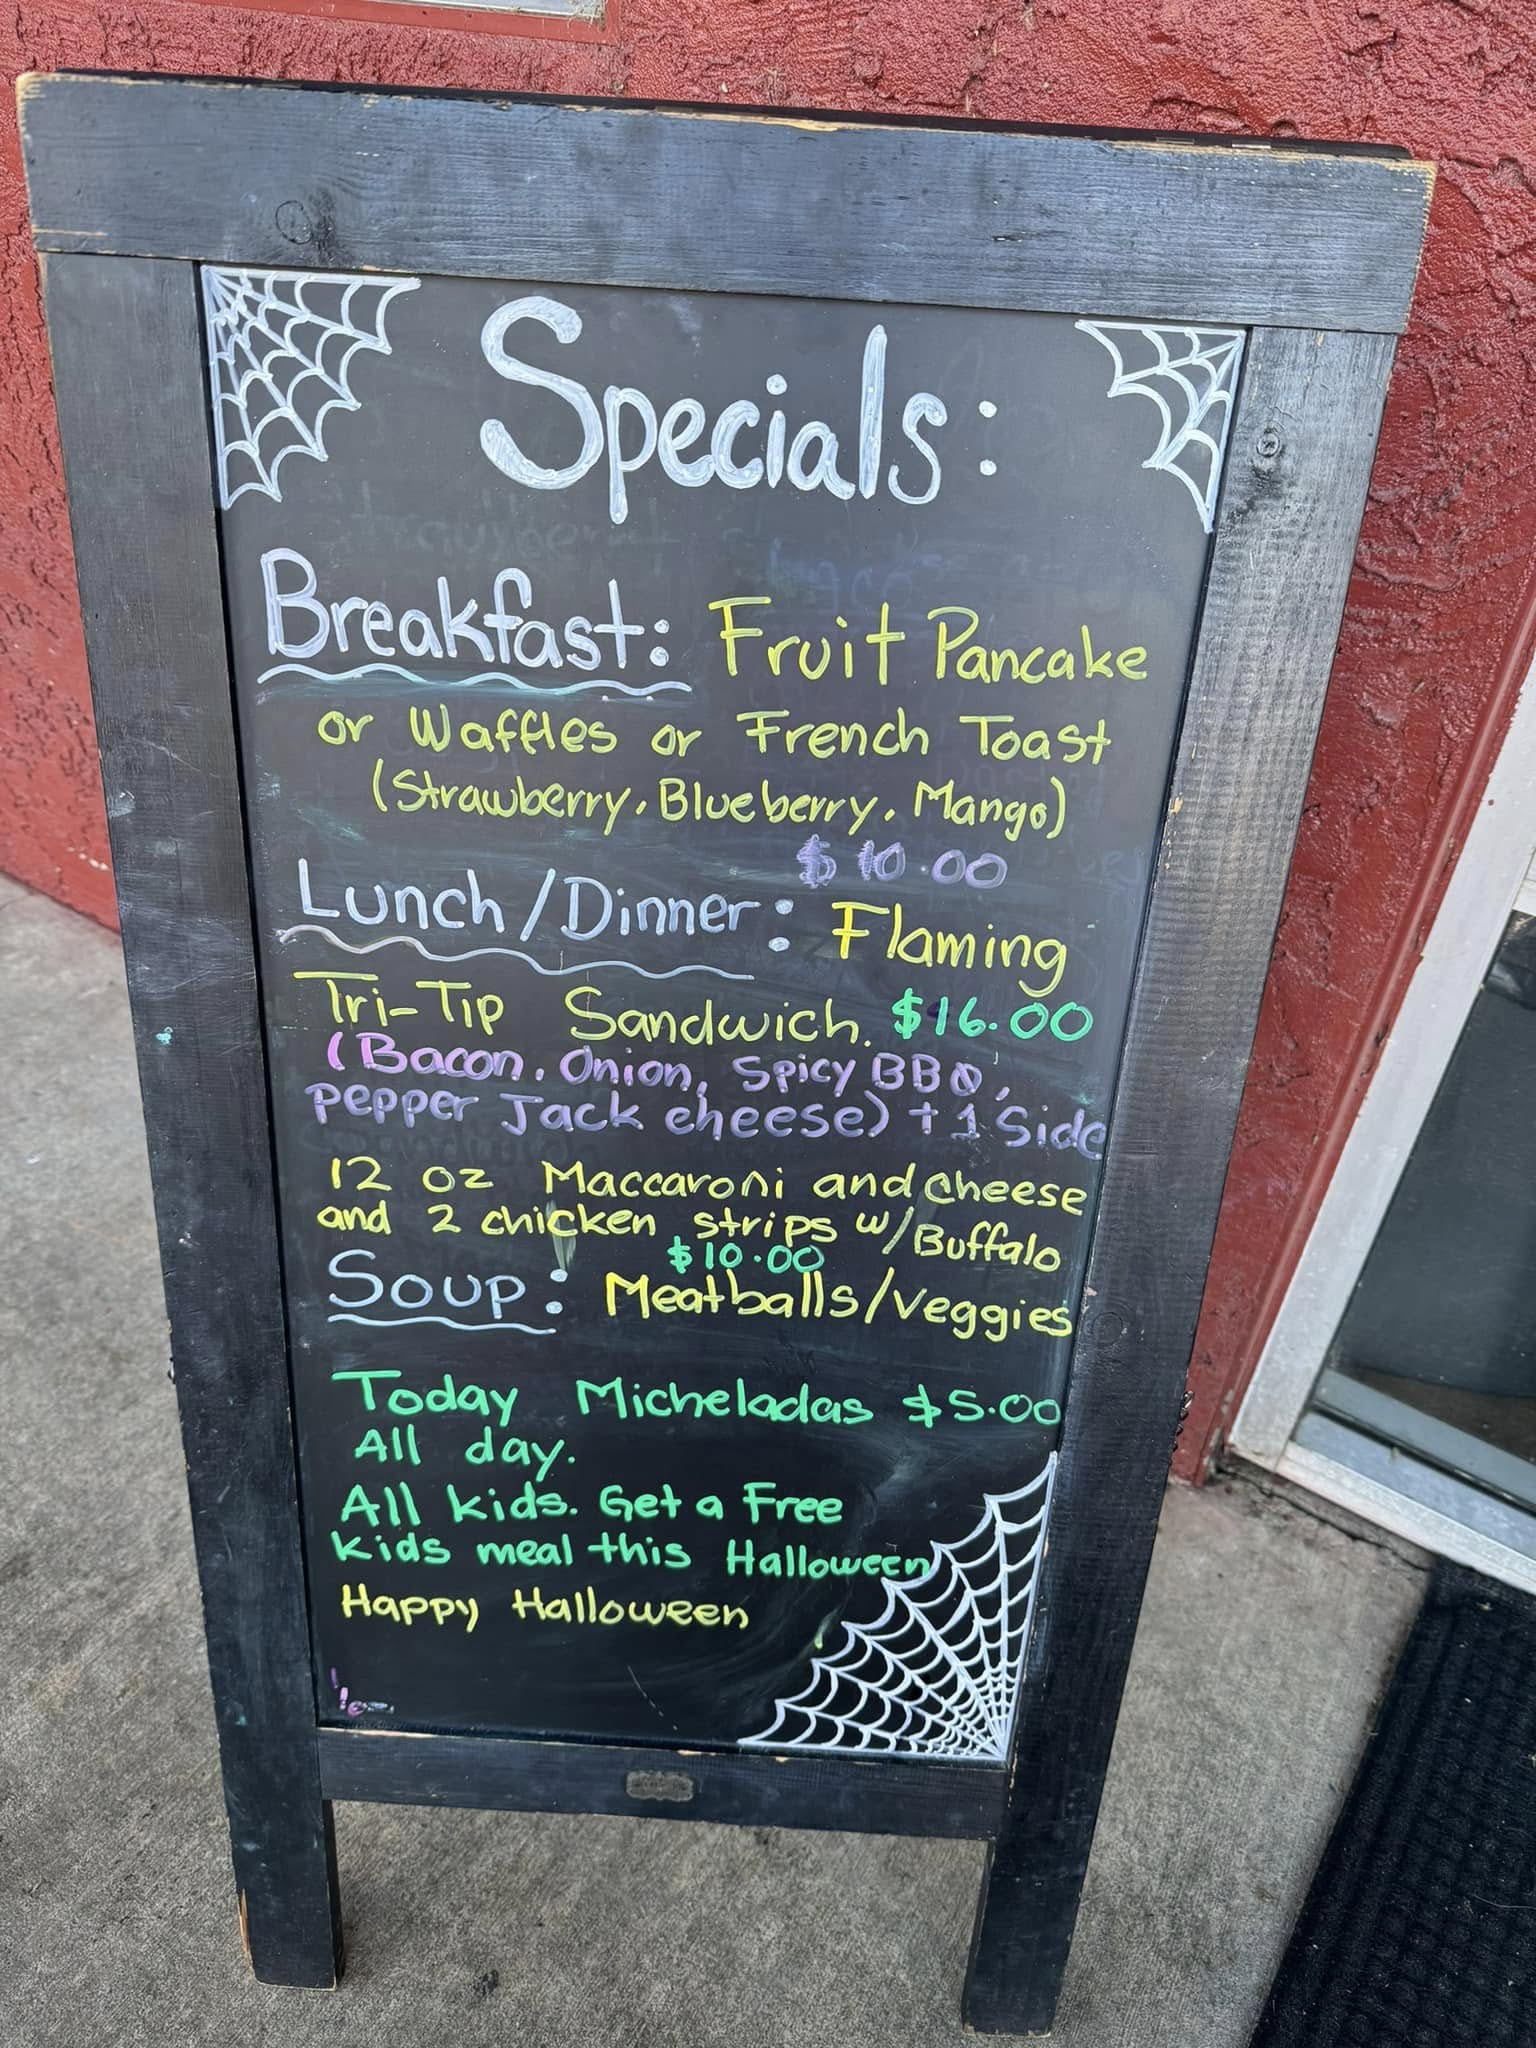 Specials:
Breakfast: Fruit Pancake
or Waffles or French Toast
(Strawberry, Blueberry, Mango)
$10.00
Lunch/Dinner: Flaming
Tri-Tip Sandwich. $16.00
(Bacon, Onion, Spicy BBQ,
pepper Jack cheese) + 1 Side
12 oz Maccaroni and cheese
and 2 chicken strips w/Buffalo
$10.00
Soup: Meatballs/Veggies
Today Micheladas $5.00
All day.
All kids. Get a Free
kids meal this Halloween
Happy Halloween